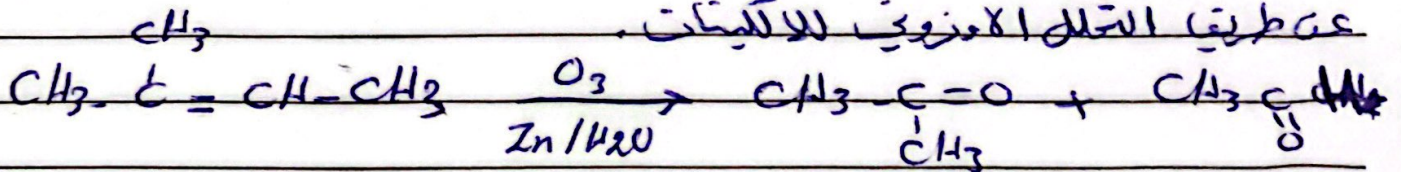 عن طريق التحلل الاوزوني للالكينات .
CH3
CH3 - C = CH - CH3 O3 → CH3 - C = O + CH3 C
Zn/H2O CH3 O